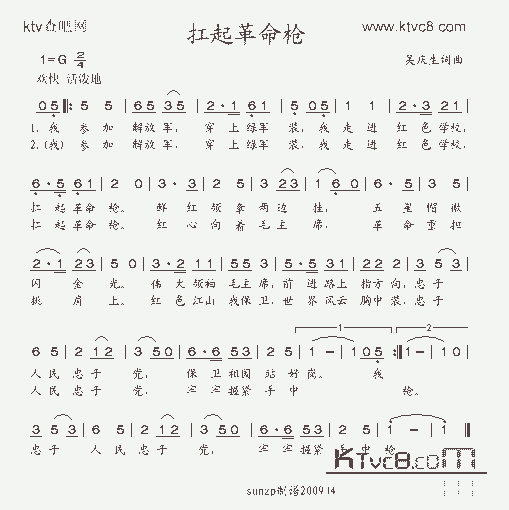 ktv查吧网 www.ktvc8.com
扛起革命枪
1=G 2/4 吴庆生词曲
欢快 活泼地
0 5 5 5 6 5 3 5 2·1 6 1 5 0 5 1 1 2·1 6 1
1.我 参加 解放军, 穿上绿军 装,我 走进 红色学校,
2.(我) 参加 解放军, 穿上绿军 装,我 走进 红色学校,
6·5 6 1 2 0 3·3 2 1 3 5 2 3 1 6 0 6·5 3 5
扛起革命 枪。 鲜红领章两边 挂, 五星帽徽
扛起革命 枪。 红心向着毛主 席, 革命重担
2·1 2 3 5 0 3·2 1 1 2 2 5 5 6 5 3 1 2 2 2 3 5 3
闪金 光。 伟大领袖 毛主席,前 进路上 指方向,忠于
挑肩 上。 红色江山 我保卫,世 界风云 胸中装,忠于
1 2
6 5 2 1 2 3 5 0 6·6 5 3 2 5 1 - 1 0 5 1 - 1 0
人民 忠于 党, 保卫祖国 站好 岗。 我
人民 忠于 党, 牢牢握紧 手中 枪。
3 5 3 6 5 2 1 2 3 5 0 6·6 5 3 2 5 1 - 1 -
忠于 人民 忠于 党, 牢牢握紧 手中 枪。
KTvc8.com
sunzp制谱200914